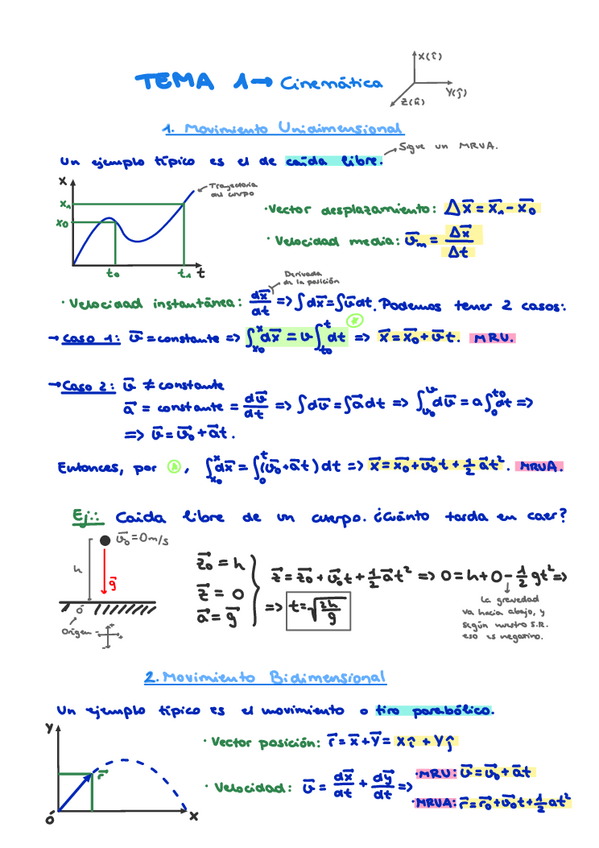 TEMA 1 → Cinemática
X(î)
Y(ĵ)
Z(k̂)
1. Movimiento Unidimensional
Un ejemplo típico es el de caída libre.
Sigue un MRVA.
X
X₁
X₀
t₀
t₁
t
Trayectoria del cuerpo
· Vector desplazamiento: Δx⃗ = x⃗₁ - x⃗₀
· Velocidad media: v⃗ₘ = Δx⃗/Δt
Derivada de la posición
· Velocidad instantánea: dx⃗/dt => ∫dx⃗ = ∫v⃗dt. Podemos tener 2 casos:
→ Caso 1: v⃗ = constante => ∫ₓ₀ˣ dx⃗ = v∫ₜ₀ᵗ dt => x⃗ = x⃗₀ + v⃗t. MRU.
→ Caso 2: v⃗ ≠ constante
a⃗ = constante = dv⃗/dt => ∫dv⃗ = ∫a⃗dt => ∫ᵥ₀ᵛ dv⃗ = a∫₀ᵗ⁰ dt =>
=> v⃗ = v⃗₀ + a⃗t.
Entonces, por , ∫ₓ₀ˣ dx⃗ = ∫₀ᵗ (v⃗₀ + a⃗t) dt => x⃗ = x⃗₀ + v⃗₀t + 1/2 a⃗t². MRUA.
Ej.: Caída libre de un cuerpo. ¿Cuánto tarda en caer?
v⃗₀ = 0 m/s
h
g⃗
O
Origen
z⃗₀ = h
z⃗ = 0
a⃗ = g⃗
z⃗ = z⃗₀ + v⃗₀t + 1/2 a⃗t² => 0 = h + 0 - 1/2 gt² =>
=> t = √(2h/g)
La gravedad
va hacia abajo, y
según nuestro S.R.
eso es negativo.
2. Movimiento Bidimensional
Un ejemplo típico es el movimiento o tiro parabólico.
Y
r⃗
O
X
· Vector posición: r⃗ = x⃗ + y⃗ = xî + yĵ
· Velocidad: v⃗ = dx⃗/dt + dy⃗/dt =>
· MRU: v⃗ = v⃗₀ + a⃗t
· MRUA: r⃗ = r⃗₀ + v⃗₀t + 1/2 at²